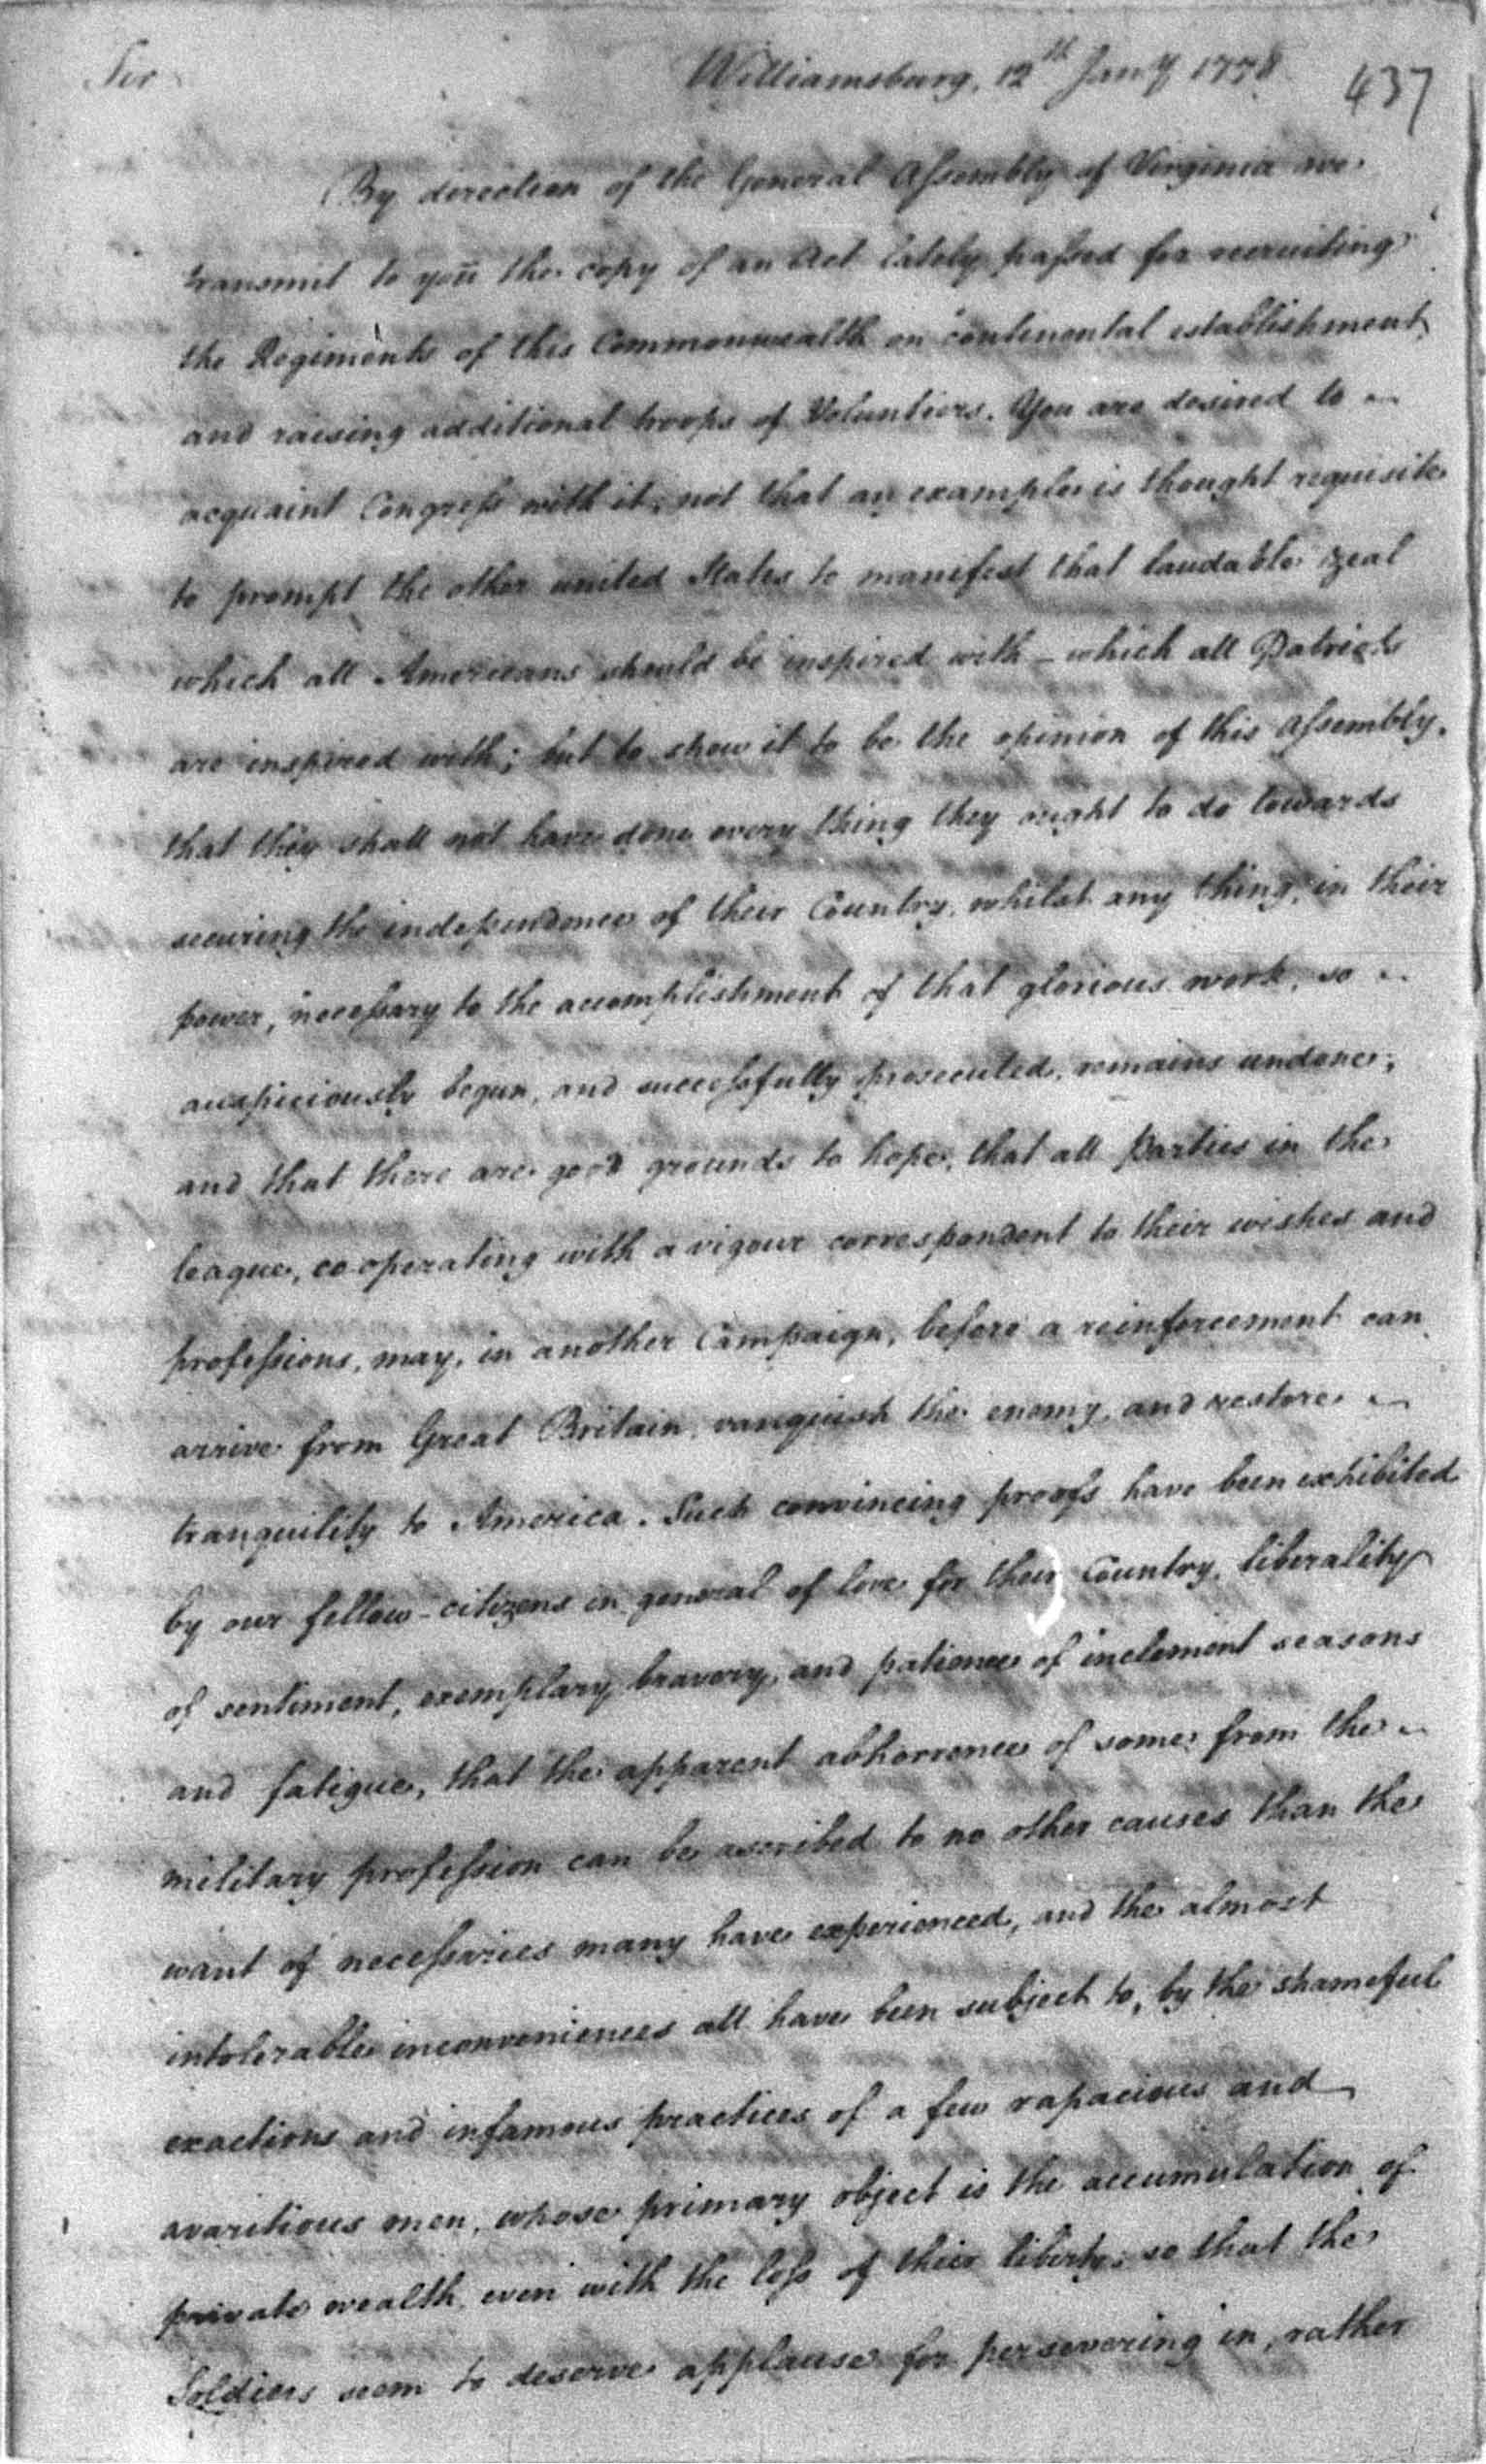 Sir Williamsburg, 12th Jany 1778 437
By direction of the General Assembly of Virginia we
transmit to you the copy of an Act lately passed for recruiting
the Regiments of this Commonwealth on continental establishment,
and raising additional troops of Volunteers. You are desired to
acquaint Congress with it, not that an example is thought requisite
to prompt the other united States to manifest that laudable zeal
which all Americans should be inspired with – which all Patriots
are inspired with; but to show it to be the opinion of this Assembly,
that they shall not have done every thing they ought to do towards
securing the independence of their Country, whilst any thing, in their
power, necessary to the accomplishment of that glorious work, so
auspiciously begun, and successfully prosecuted, remains undone;
and that there are good grounds to hope, that all Parties in the
league, co-operating with a vigour correspondent to their wishes and
professions, may, in another Campaign, before a reinforcement can
arrive from Great Britain, vanquish the enemy, and restore
tranquility to America. Such convincing proofs have been exhibited
by our fellow-citizens in general of love for their Country, liberality
of sentiment, exemplary bravery, and patience of inclement seasons
and fatigue, that the apparent abhorrence of some from the
military profession can be ascribed to no other causes than the
want of necessaries many have experienced, and the almost
intolerable inconveniences all have been subject to, by the shameful
exactions and infamous practices of a few rapacious and
avaritious men, whose primary object is the accumulation of
private wealth, even with the loss of their liberty; so that the
Soldiers seem to deserve applause for persevering in, rather